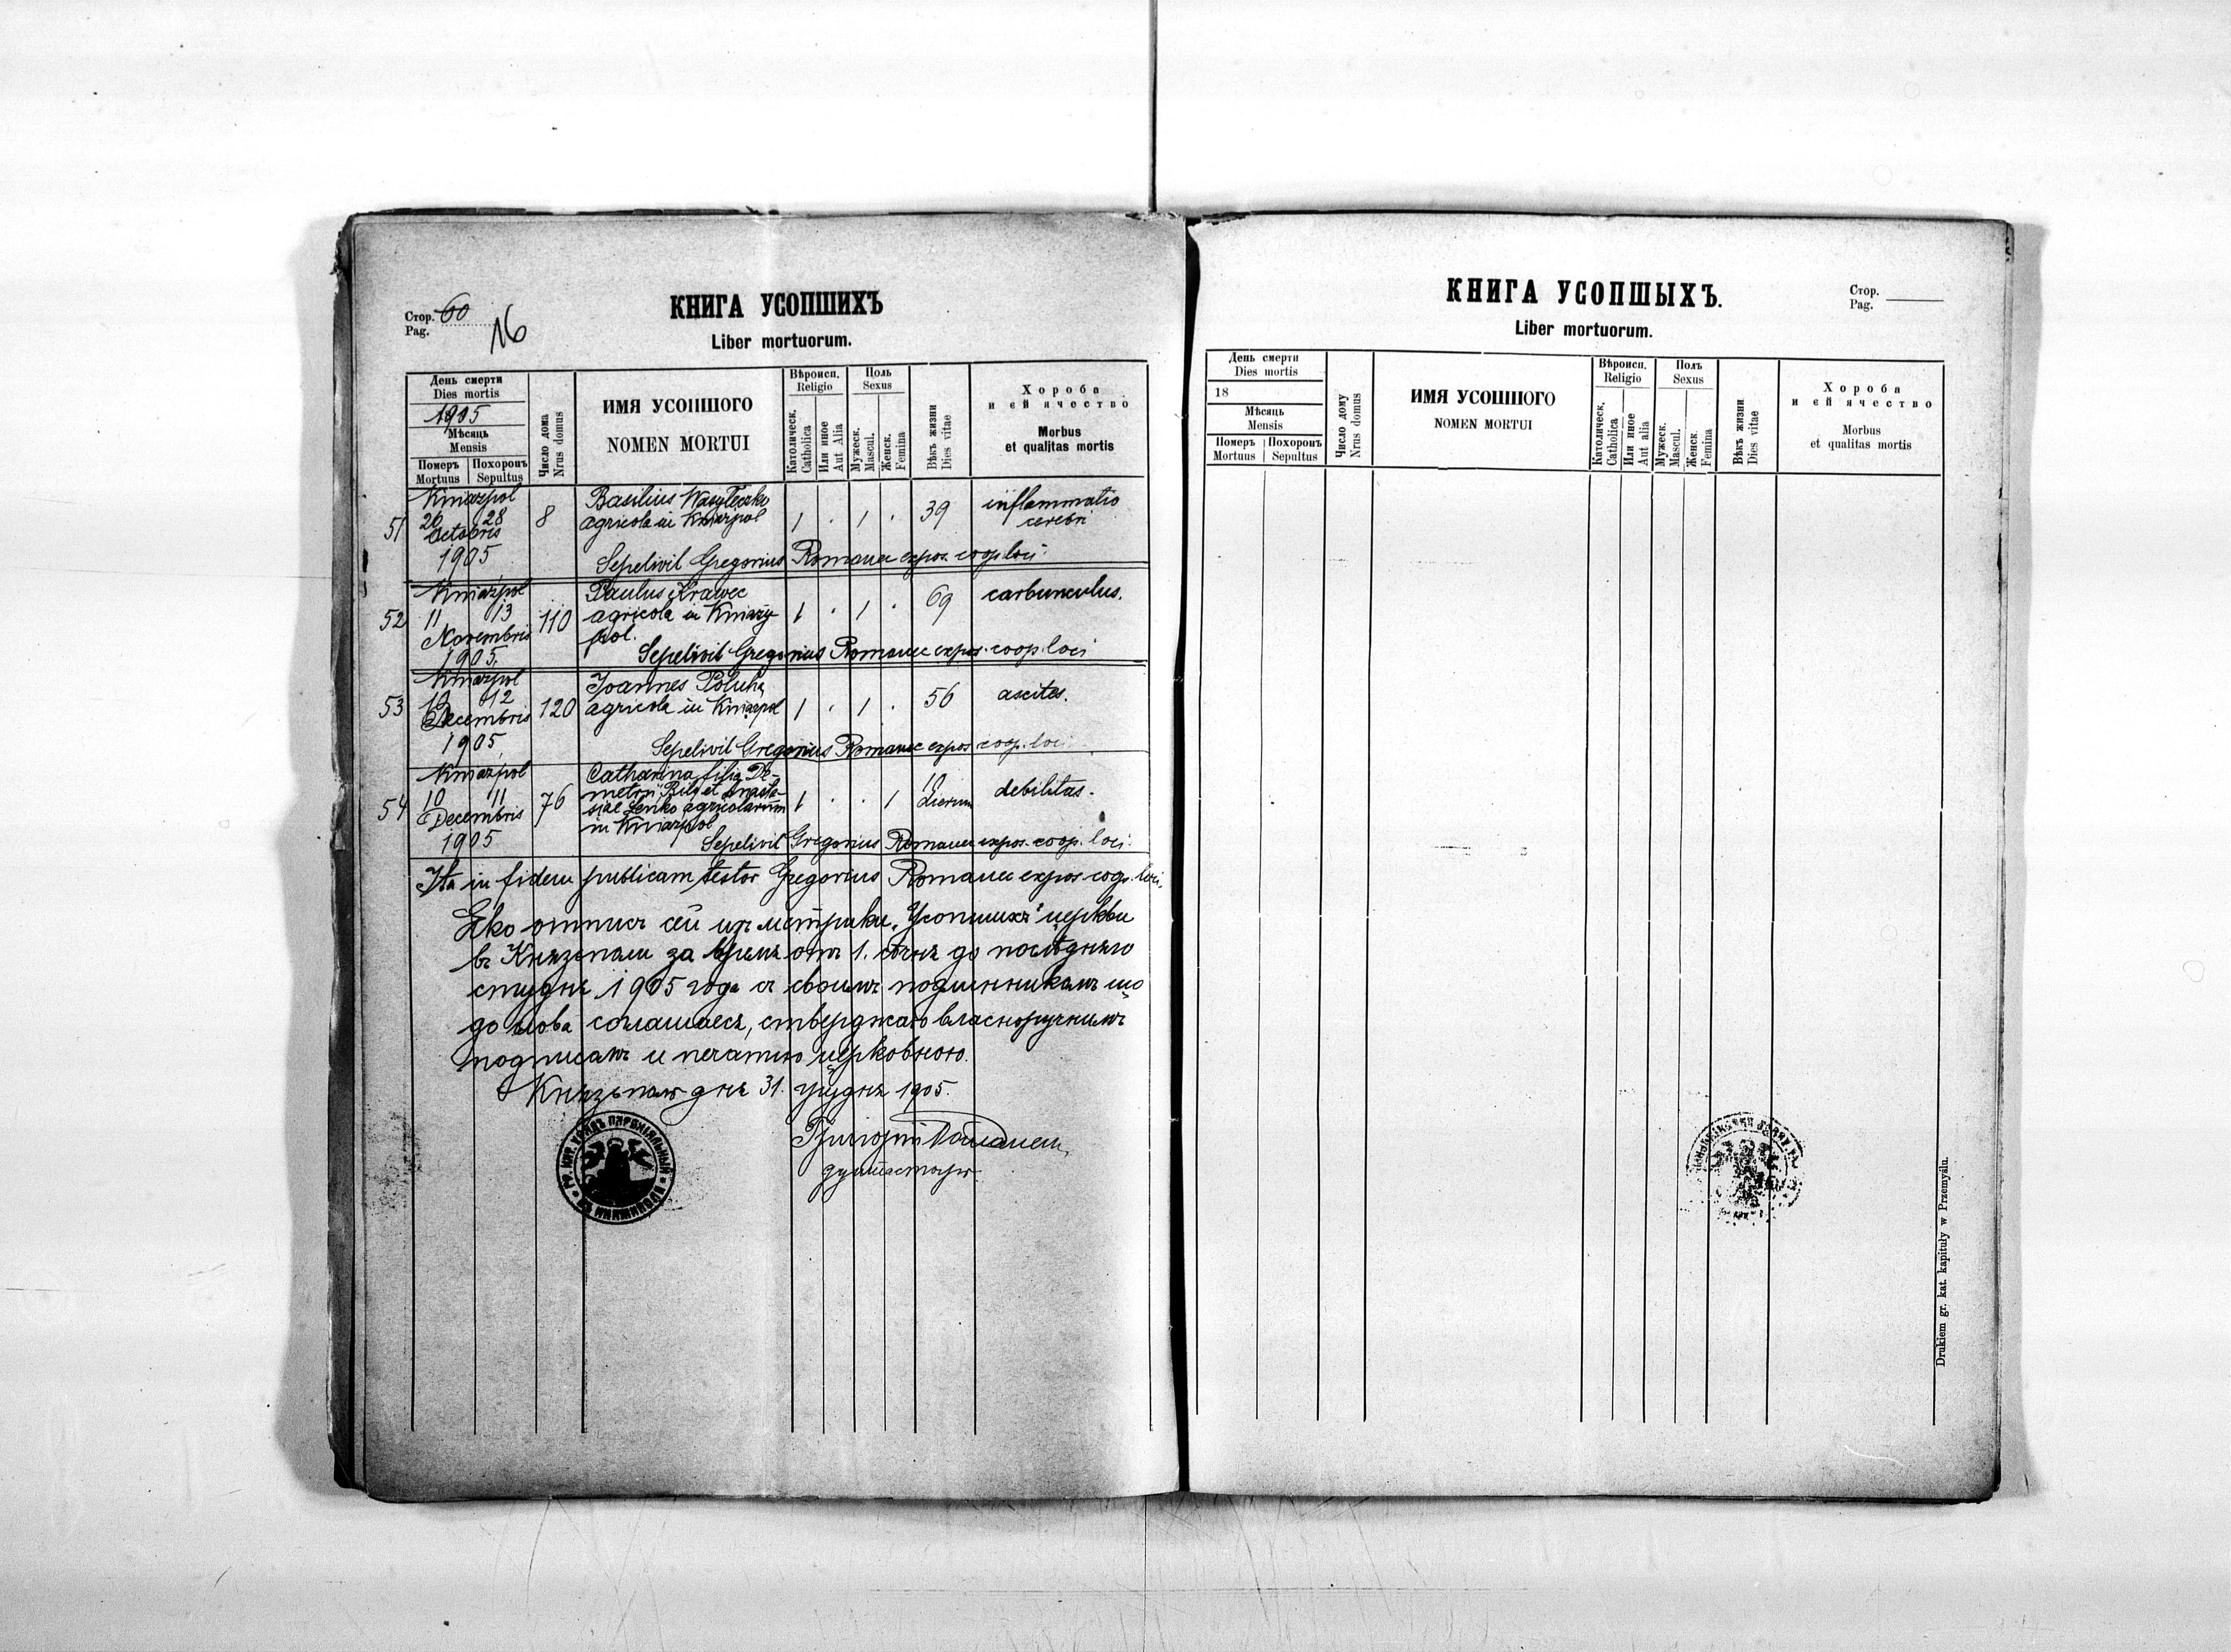 Стор. 60
Pag.
16
КНИГА УСОПШИХЪ
Liber mortuorum.
День смерти
Dies mortis
1905
Мѣсяць
Mensis
Померъ Похоронъ
Mortuus Sepultus
Число дома
Nrus domus
ИМЯ УСОПШОГО
NOMEN MORTUI
Вѣроисп.
Religio
Католическ.
Catholica
Или иное
Aut Alia
Поль
Sexus
Мужеск.
Mascul.
Женск.
Femina
Вѣкъ жизни
Dies vitae
Хороба
и єй ячество
Morbus
et qualitas mortis
51 Kniazpol
26 28
Octobris
1905
8
Basilius Wasyleczko
agricola in Kniazpol
1 . 1 .
39
inflammatio
cerebri
Sepelivit Gregorius Romanec expos. coop. loci.
52 Kniazpol
11 13
Novembris
1905.
110
Paulus Krawec
agricola in Kniaz-
pol.
1 . 1 .
69
carbunculus.
Sepelivit Gregorius Romanec expos. coop. loci
53 Kniazpol
12
Decembris
1905
120
Joannes Poluha
agricola in Kniazpol
1 . 1 .
56
ascites.
Sepelivit Gregorius Romanec expos. coop. loci
54 Kniazpol
10 11
Decembris
1905
76
Catharina filia De-
metrii Bily et Anasta-
siae Senko agricolarum
in Kniazpol
1 . . 1
10
Dierum
debilitas.
Sepelivit Gregorius Romanec expos. coop. loci.
Ita in fidem publicam testor Gregorius Romanec expos. coop. loci.
Яко отписъ сей изъ метрики „Усопшихъ" церкви
въ Князьполи за время отъ 1. сѣчня до послѣдняго
студня 1905 года съ своимъ подлинникомъ що
до слова соглашаесь, стверджаю власноручнымъ
подписомъ и печатию церковною.
Князьполь дня 31. грудня 1905.
Григорій Романец
душпастырь
КНИГА УСОПШЫХЪ.
Liber mortuorum.
Стор.
Pag.
День смерти
Dies mortis
18
Мѣсяць
Mensis
Померъ Похоронъ
Mortuus Sepultus
Число дому
Nrus domus
ИМЯ УСОПШОГО
NOMEN MORTUI
Вѣроисп.
Religio
Католическ.
Catholica
Или иное
Aut alia
Полъ
Sexus
Мужеск.
Mascul.
Женск.
Femina
Вѣкъ жизни
Dies vitae
Хороба
и єй ячество
Morbus
et qualitas mortis
Drukiem gr. kat. kapituły w Przemyślu.